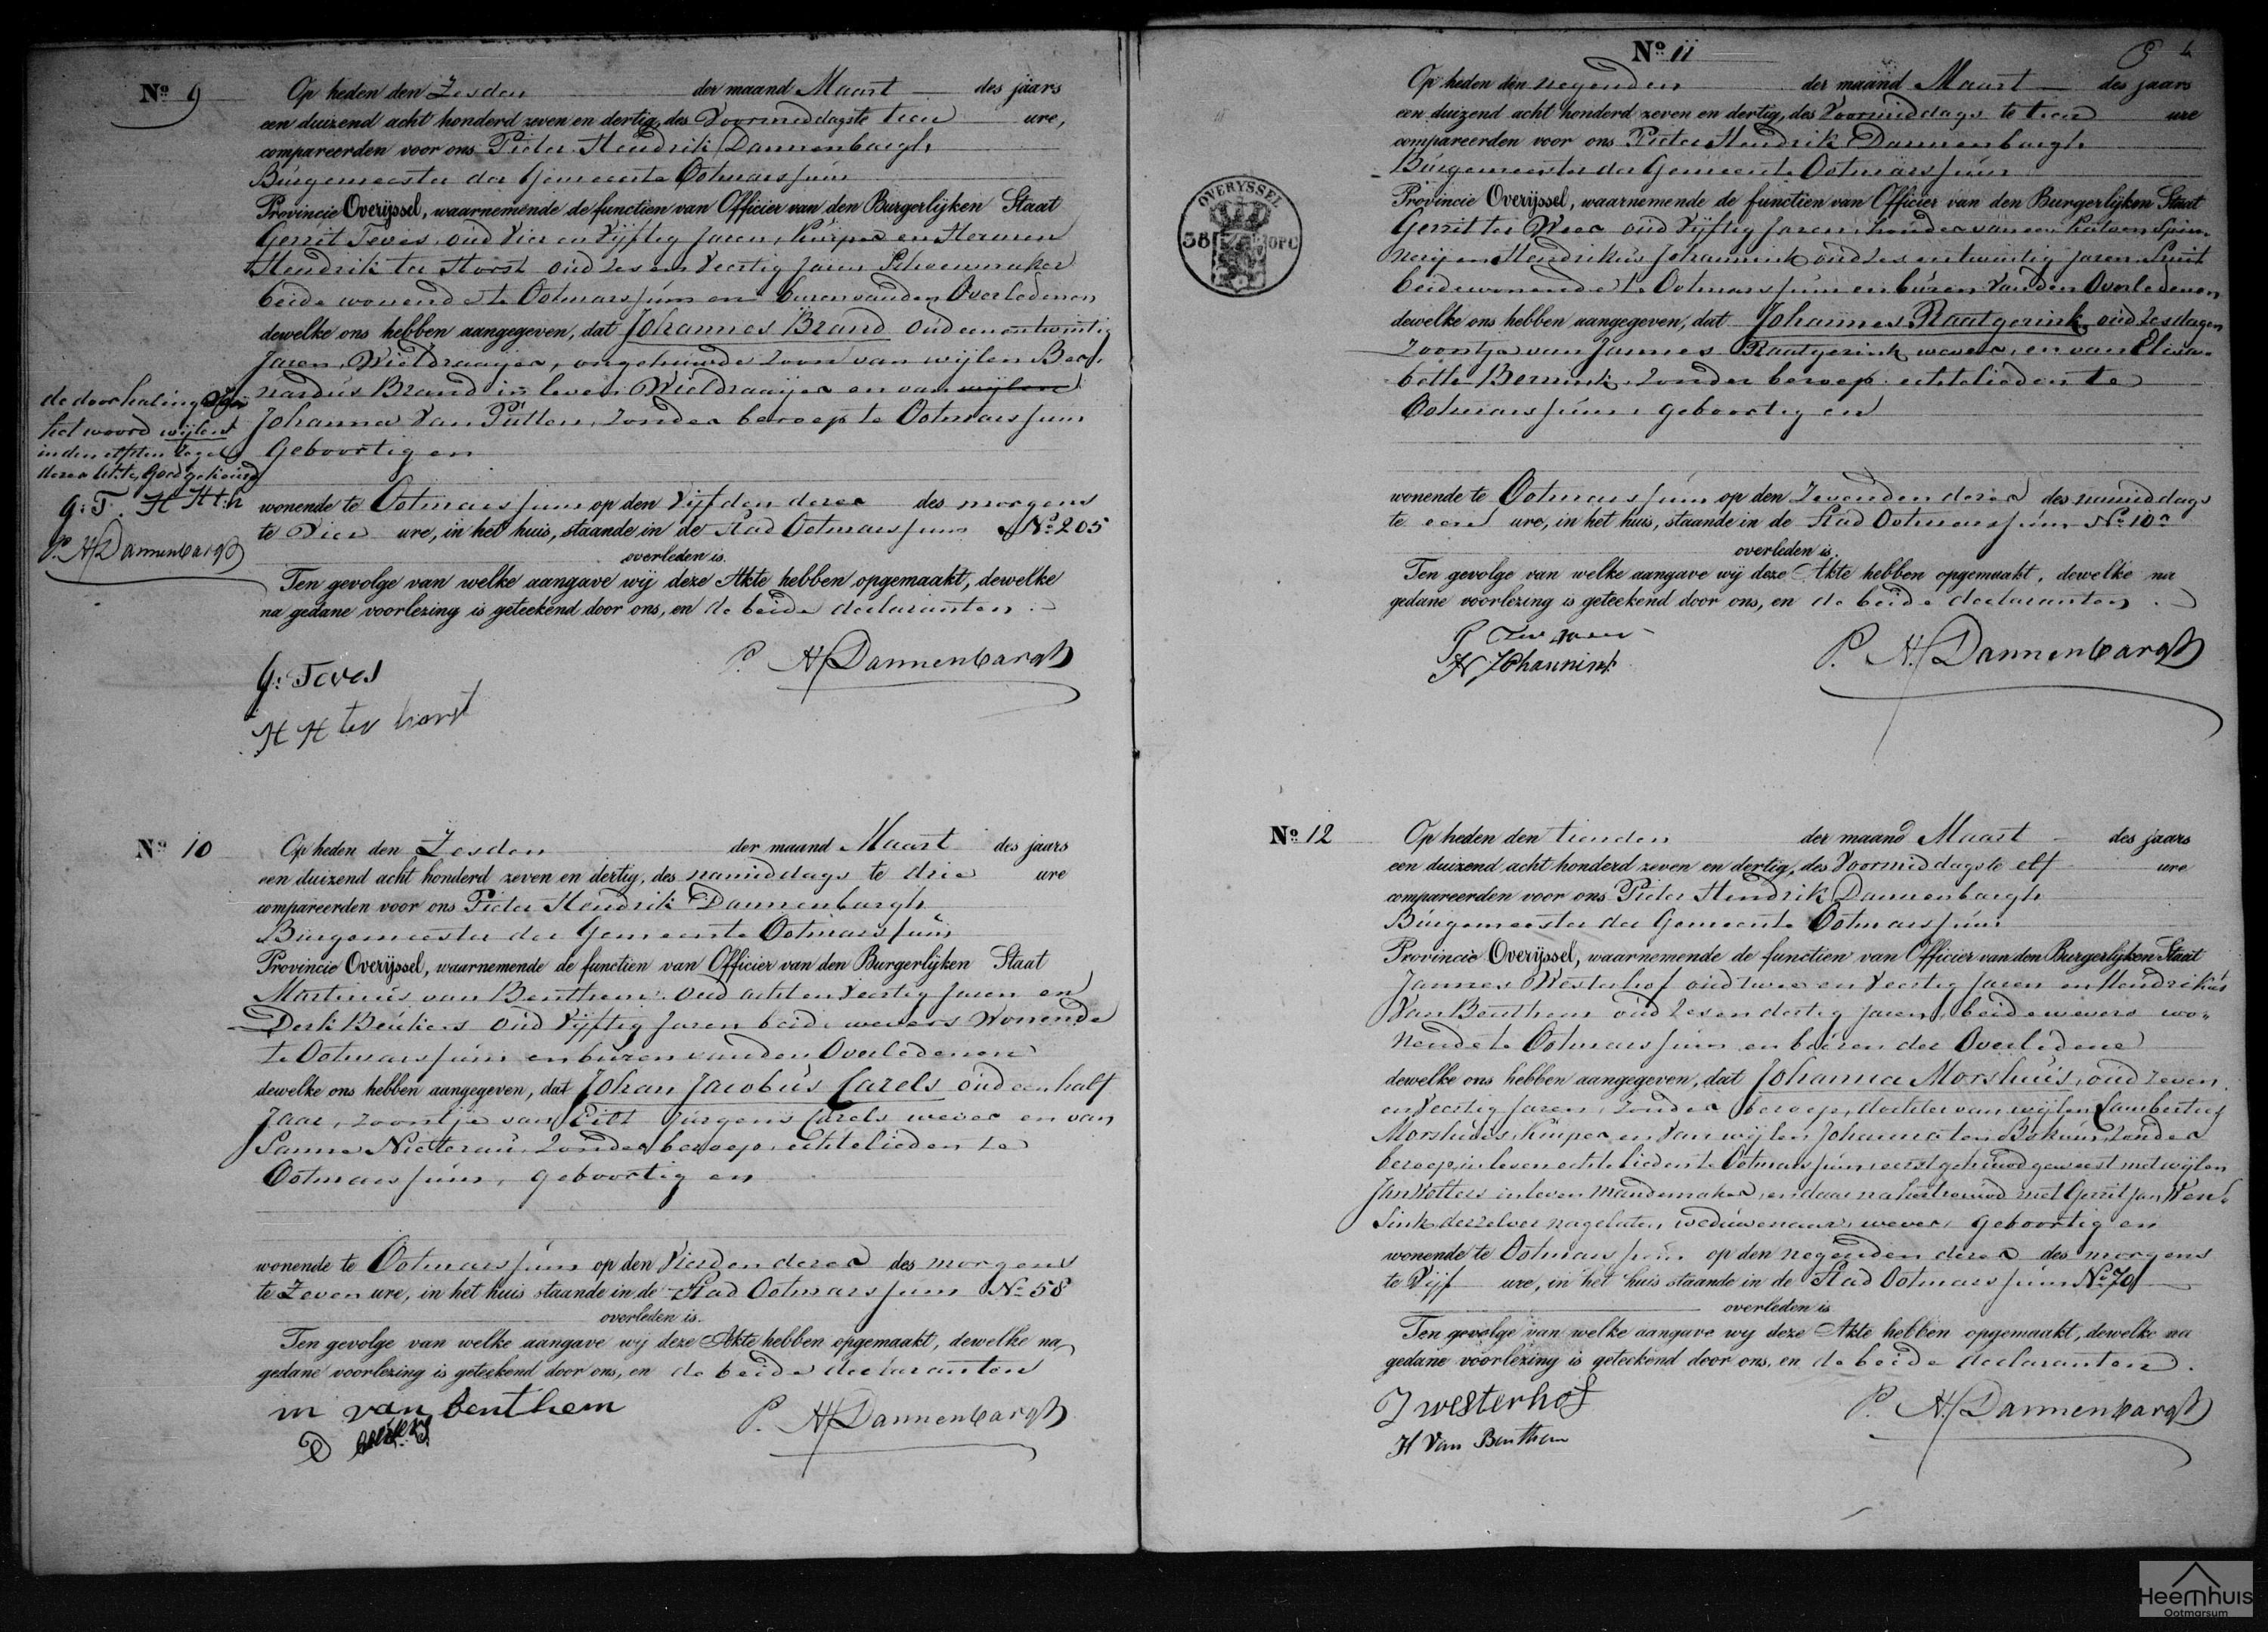 Nº 9
Op heden den Zesden der maand Maart des jaars
een duizend acht honderd zeven en dertig, des Voormiddags te tien ure,
compareerden voor ons Pieter Hendrik Dannenbargh
Burgemeester der Gemeente Ootmarssum
Provincie Overijssel, waarnemende de functien van Officier van den Burgerlijken Staat
Gerrit Teves, oud Vier en Vijftig Jaren, Kuiper en Hermen
Hendrik ter Horst oud zes en Veertig Jaren Schoenmaker
beide wonende te Ootmarssum en buren van den Overledenen
dewelke ons hebben aangegeven, dat Johannes Brand oud een en twintig
Jaren, Wieldraaijer, ongehuwde zoon van wijlen Ber-
nardus Brand in leven Wieldraaijer en van wijlen
Johanna Van Putten, zonder beroep te Ootmarssum
Geboortig en
wonende te Ootmarssum op den Vijfden dezer des morgens
te Vier ure, in het huis, staande in de Stad Ootmarssum Nº 205
overleden is.
Ten gevolge van welke aangave wij deze Akte hebben opgemaakt, dewelke
na gedane voorlezing is geteekend door ons, en de beide declaranten.
de doorhaling van
het woord wijlen
in den elfden regel
dezer akte, goedgekeurd
G: T. H H t h
P. H Dannenbargh
G: Teves
P. H Dannenbargh
H H ter horst
Nº 10
Op heden den Zesden der maand Maart des jaars
een duizend acht honderd zeven en dertig, des namiddags te drie ure
compareerden voor ons Pieter Hendrik Dannenbargh
Burgemeester der Gemeente Ootmarssum
Provincie Overijssel, waarnemende de functien van Officier van den Burgerlijken Staat
Martinus van Benthem oud acht en Veertig Jaren en
Derk Beukers oud Vijftig Jaren beide wevers Wonende
te Ootmarssum en buren van den Overledenen
dewelke ons hebben aangegeven, dat Johan Jacobus Carels oud een half
Jaar, zoontje van Jurgens Carels wever en van
Sanna zonder beroep, echtelieden te
Ootmarssum, geboortig en
wonende te Ootmarssum op den Vierden dezer des morgens
te Zeven ure, in het huis staande in de Stad Ootmarssum Nº 58
overleden is.
Ten gevolge van welke aangave wij deze Akte hebben opgemaakt, dewelke na
gedane voorlezing is geteekend door ons, en de beide declaranten
m van benthem
P. H Dannenbargh
D
OVERYSSEL
38 OPC
4
Nº 11
Op heden den negenden der maand Maart des jaars
een duizend acht honderd zeven en dertig, des Voormiddags te tien ure
compareerden voor ons Pieter Hendrik Dannenbargh
Burgemeester der Gemeente Ootmarssum
Provincie Overijssel, waarnemende de functien van Officier van den Burgerlijken Staat
Gerrit ter Weer oud Vijftig Jaren, houder van een Katoen Spin-
nerij en Hendrikus Johannink oud zes en twintig jaren Smit
beide wonende te Ootmarssum en buren van den Overledenen
dewelke ons hebben aangegeven, dat Johannes Raatgerink, oud zes dagen
zoontje van Jannes Raatgerink wever, en van Elisa-
beth zonder beroep echtelieden te
Ootmarssum, geboortig en
wonende te Ootmarssum op den Zevenden dezer des namiddags
te een ure, in het huis, staande in de Stad Ootmarssum Nº 10
overleden is.
Ten gevolge van welke aangave wij deze Akte hebben opgemaakt, dewelke na
gedane voorlezing is geteekend door ons, en de beide declaranten.
H Johannink
P. H. Dannenbargh
Nº 12
Op heden den tienden der maand Maart des jaars
een duizend acht honderd zeven en dertig, des Voormiddags te elf ure
compareerden voor ons Pieter Hendrik Dannenbargh
Burgemeester der Gemeente Ootmarssum
Provincie Overijssel, waarnemende de functien van Officier van den Burgerlijken Staat
Jannes Westerhof oud twee en Veertig Jaren en Hendrikus
Van Benthem oud zes en dertig jaren, beide wevers wo-
nende te Ootmarssum en buren der Overledene
dewelke ons hebben aangegeven, dat Johanna Morshuis, oud zeven
en Veertig Jaren, zonder beroep, dochter van wijlen Lambertus
Morshuis, Kuiper en Van wijlen Johanna ten zonder
beroep, in leven echtelieden te Ootmarssum, eerst gehuwd geweest met wijlen
Jan Wolters in leven mandemaker, en daarna hertrouwd met Gerrit Jan Wen-
sink deszelver nagelaten weduwenaar, wever, geboortig en
wonende te Ootmarssum op den negenden dezer des morgens
te Vijf ure, in het huis staande in de Stad Ootmarssum Nº 70
overleden is
Ten gevolge van welke aangave wy deze Akte hebben opgemaakt, dewelke na
gedane voorlezing is geteekend door ons, en de beide declaranten.
J westerhof
P. H. Dannenbargh
H Van Benthem
Heemhuis
Ootmarsum